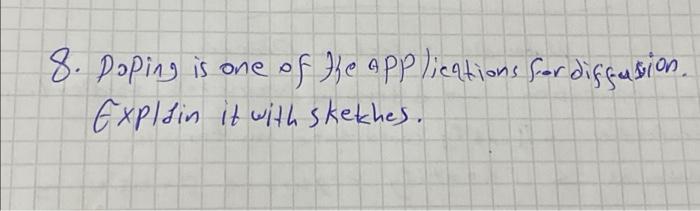 8. Doping is one of the applications for diffusion.
Explain it with sketches.